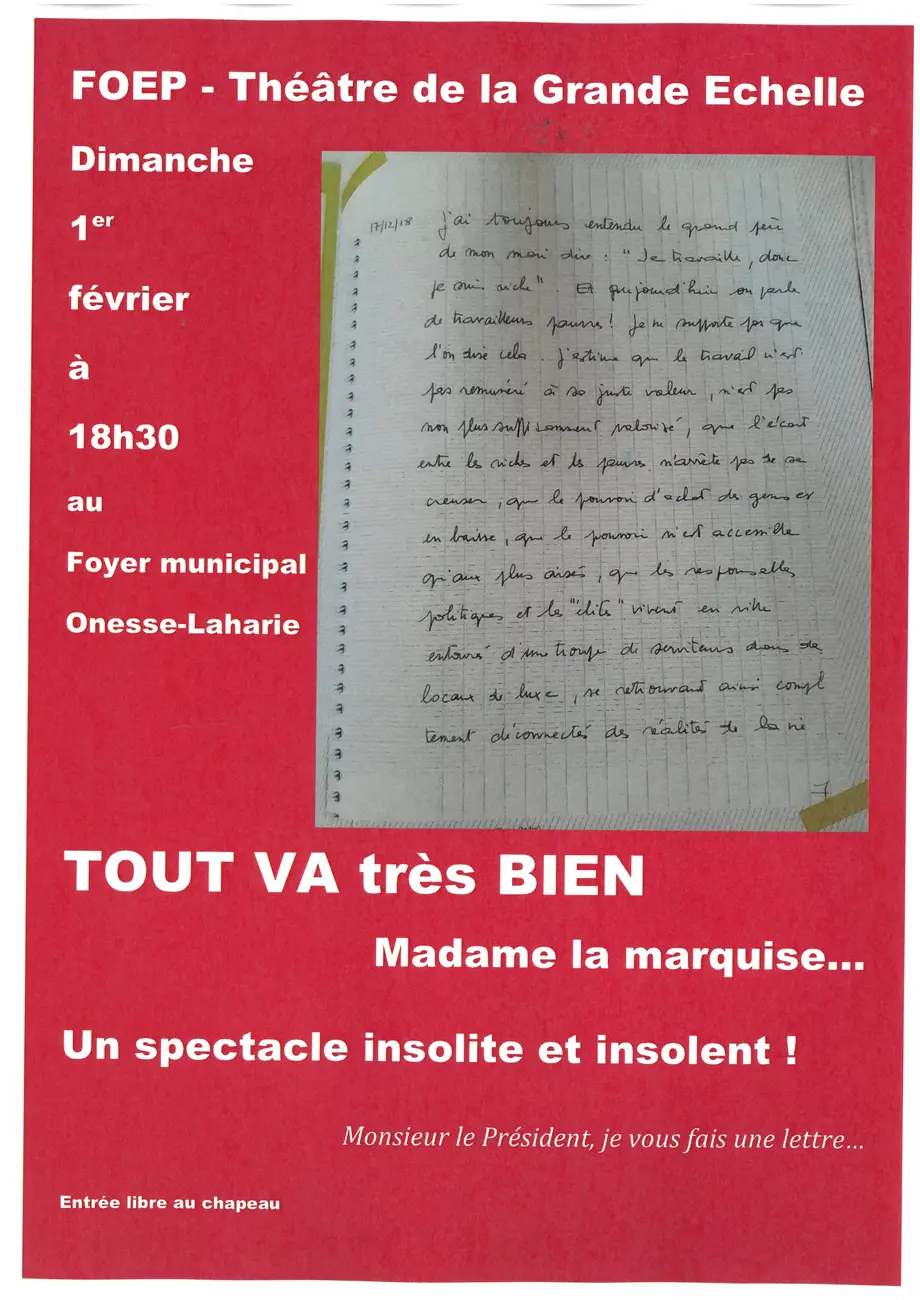 FOEP - Théâtre de la Grande Echelle
Dimanche
1er
février
à
18h30
au
Foyer municipal
Onesse-Laharie
17/12/18 j'ai toujours entendu le grand père
de mon mari dire : "Je travaille, donc
je suis riche". Et aujourd'hui on parle
de travailleurs pauvres ! Je ne supporte pas que
l'on dise cela. J'estime que le travail n'est
pas remunéré à sa juste valeur, n'est pas
non plus suffisamment valorisé, que l'écart
entre les riches et les pauvres n'arrête pas de se
creuser, que le pouvoir d'achat des gens est
en baisse, que le pouvoir n'est accessible
qu'aux plus aisés, que les responsables
politiques et les "élites" vivent en ville
entourés d'une troupe de serviteurs dans de
locaux de luxe, se retrouvant ainsi compl
tement déconnectés des réalités de la vie
7
TOUT VA très BIEN
Madame la marquise...
Un spectacle insolite et insolent !
Monsieur le Président, je vous fais une lettre...
Entrée libre au chapeau